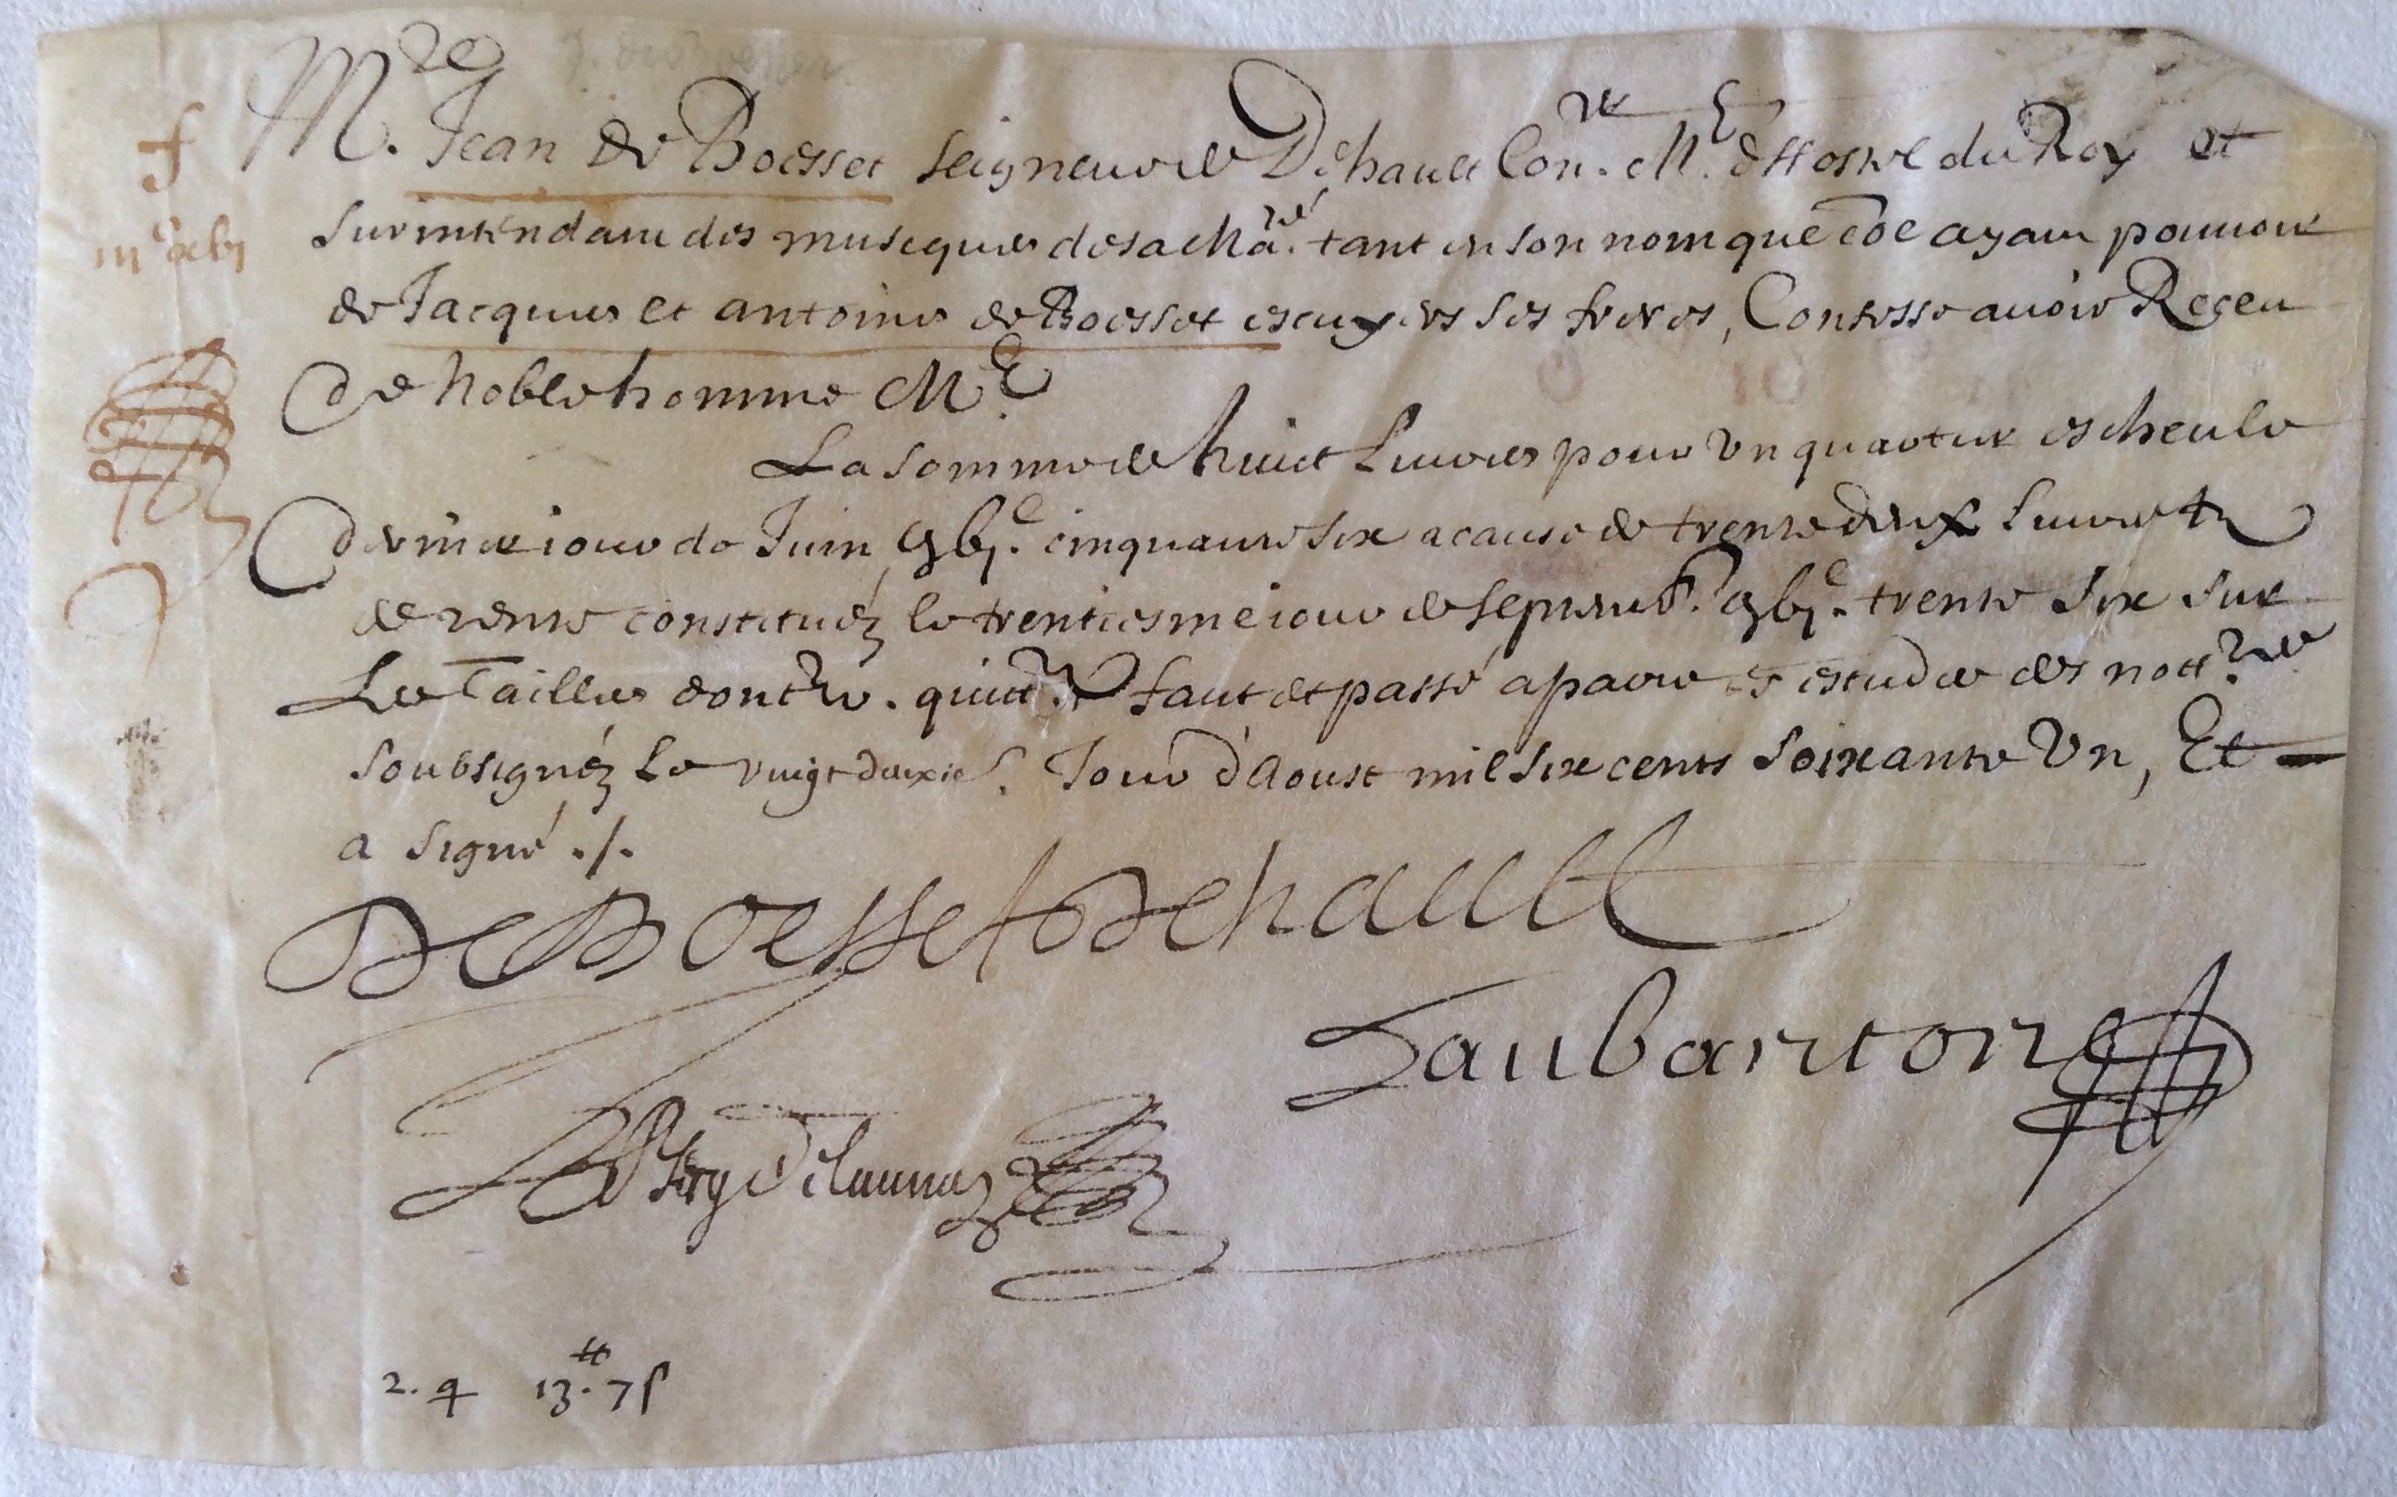 Mre. Jean de Boesset seigneur de Dehault Con.er Me. d'Hostel du Roy et
f
surintendant des musiques de sa Ma.té tant en son nom que cõe ayant pouvoir
de Jacques et antoine de Boesset escuyers ses freres, Confesse avoir Receu
de Noble homme Me.
La somme de huict Livres pour Un quartier escheu le
dernier jour de Juin gbjc. cinquante six a cause de trente deux Livres tz
de rente constituéz le trentiesme jour de septemb. gbjc. trente six sur
Les Tailles dont &c. quict. &c faict et passé a paris es estudes des nottres
soubsignéz Le vingt deuxies. Jour d'Aoust mil six cents soixante Un, Et
a signé ./.
De Boesset Dehault
Le Vasseur
2. q 13.tt 7 s